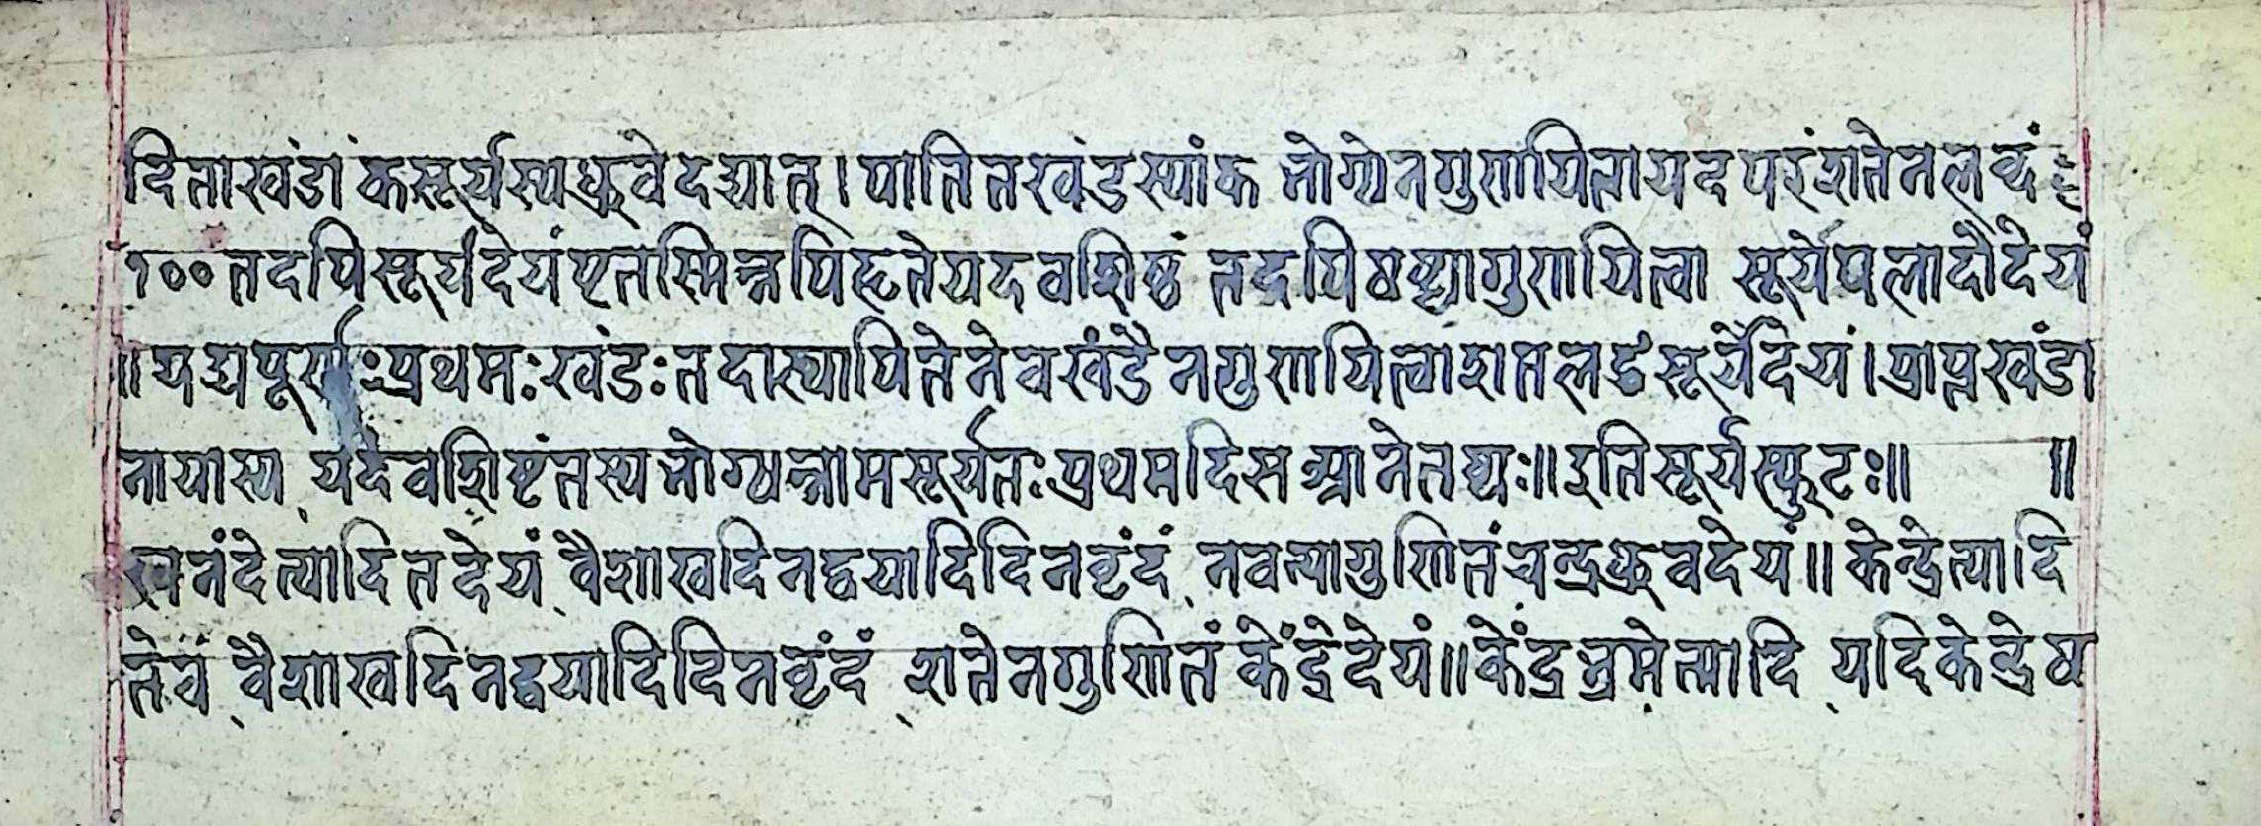 दिताखंडांकसूर्यस्यध्रुवेदद्यात्।पातितखंडस्यांकभोग्येनगुणयित्वायदपरंशतेनलब्धं
१००तदपिसूर्यदेयंष्टतस्मिन्नपिहृतेयदवशिष्ठं तदपिषष्ठ्यागुणयित्वा सूर्येपलादौदेयं
॥यद्यपूर्णःप्रथमःखंडःतदास्थापितेनेवखंडेनगुणयित्वाशतलब्धंसूर्येदेयं।प्राप्तखंडा
नायास्य यदवशिष्टंतस्यभोग्यन्नामसूर्यतःप्रथमदिसम्प्रानेतष्यः॥इतिसूर्यस्फुटः॥ ॥
खनंदेत्यादितद्देयं वैशाखदिनद्वयादिदिनवृंदं नवत्यागुणितंचन्द्रध्रुवदेयं॥केन्द्रेत्यादि
तेवं वैशाखदिनद्वयादिदिनवृंदं शतेनगुणितंकेंद्रेदेयं॥केंद्रभ्रमेत्यादि यदिकेन्द्रेष